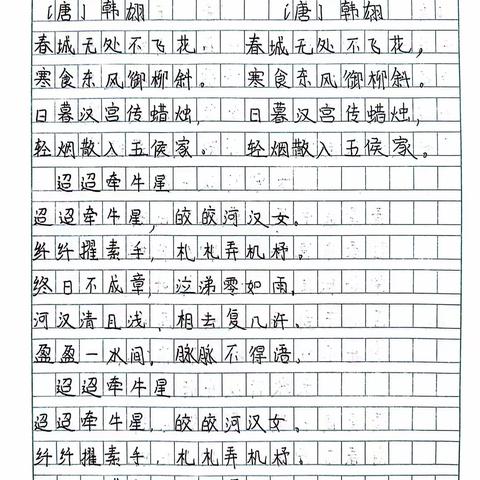 〔唐〕韩翃 〔唐〕韩翃
春城无处不飞花, 春城无处不飞花,
寒食东风御柳斜。 寒食东风御柳斜。
日暮汉宫传蜡烛, 日暮汉宫传蜡烛,
轻烟散入五侯家。 轻烟散入五侯家。
迢迢牵牛星
迢迢牵牛星,皎皎河汉女。
纤纤擢素手,札札弄机杼。
终日不成章,泣涕零如雨。
河汉清且浅,相去复几许。
盈盈一水间,脉脉不得语。
迢迢牵牛星
迢迢牵牛星,皎皎河汉女。
纤纤擢素手,札札弄机杼。